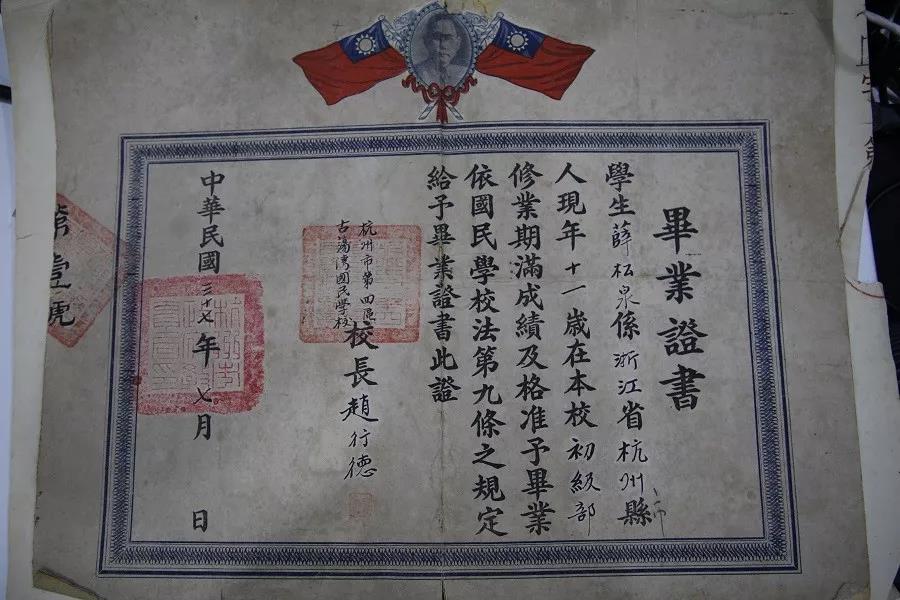 畢業證書
學生薛松泉係浙江省杭州縣市
人現年十一歲在本校初級部
修業期滿成績及格准予畢業
依國民學校法第九條之規定
給予畢業證書此證
杭州市第四區
古蕩灣國民學校
校長趙行德
中華民國三十七年七月 日
第壹號